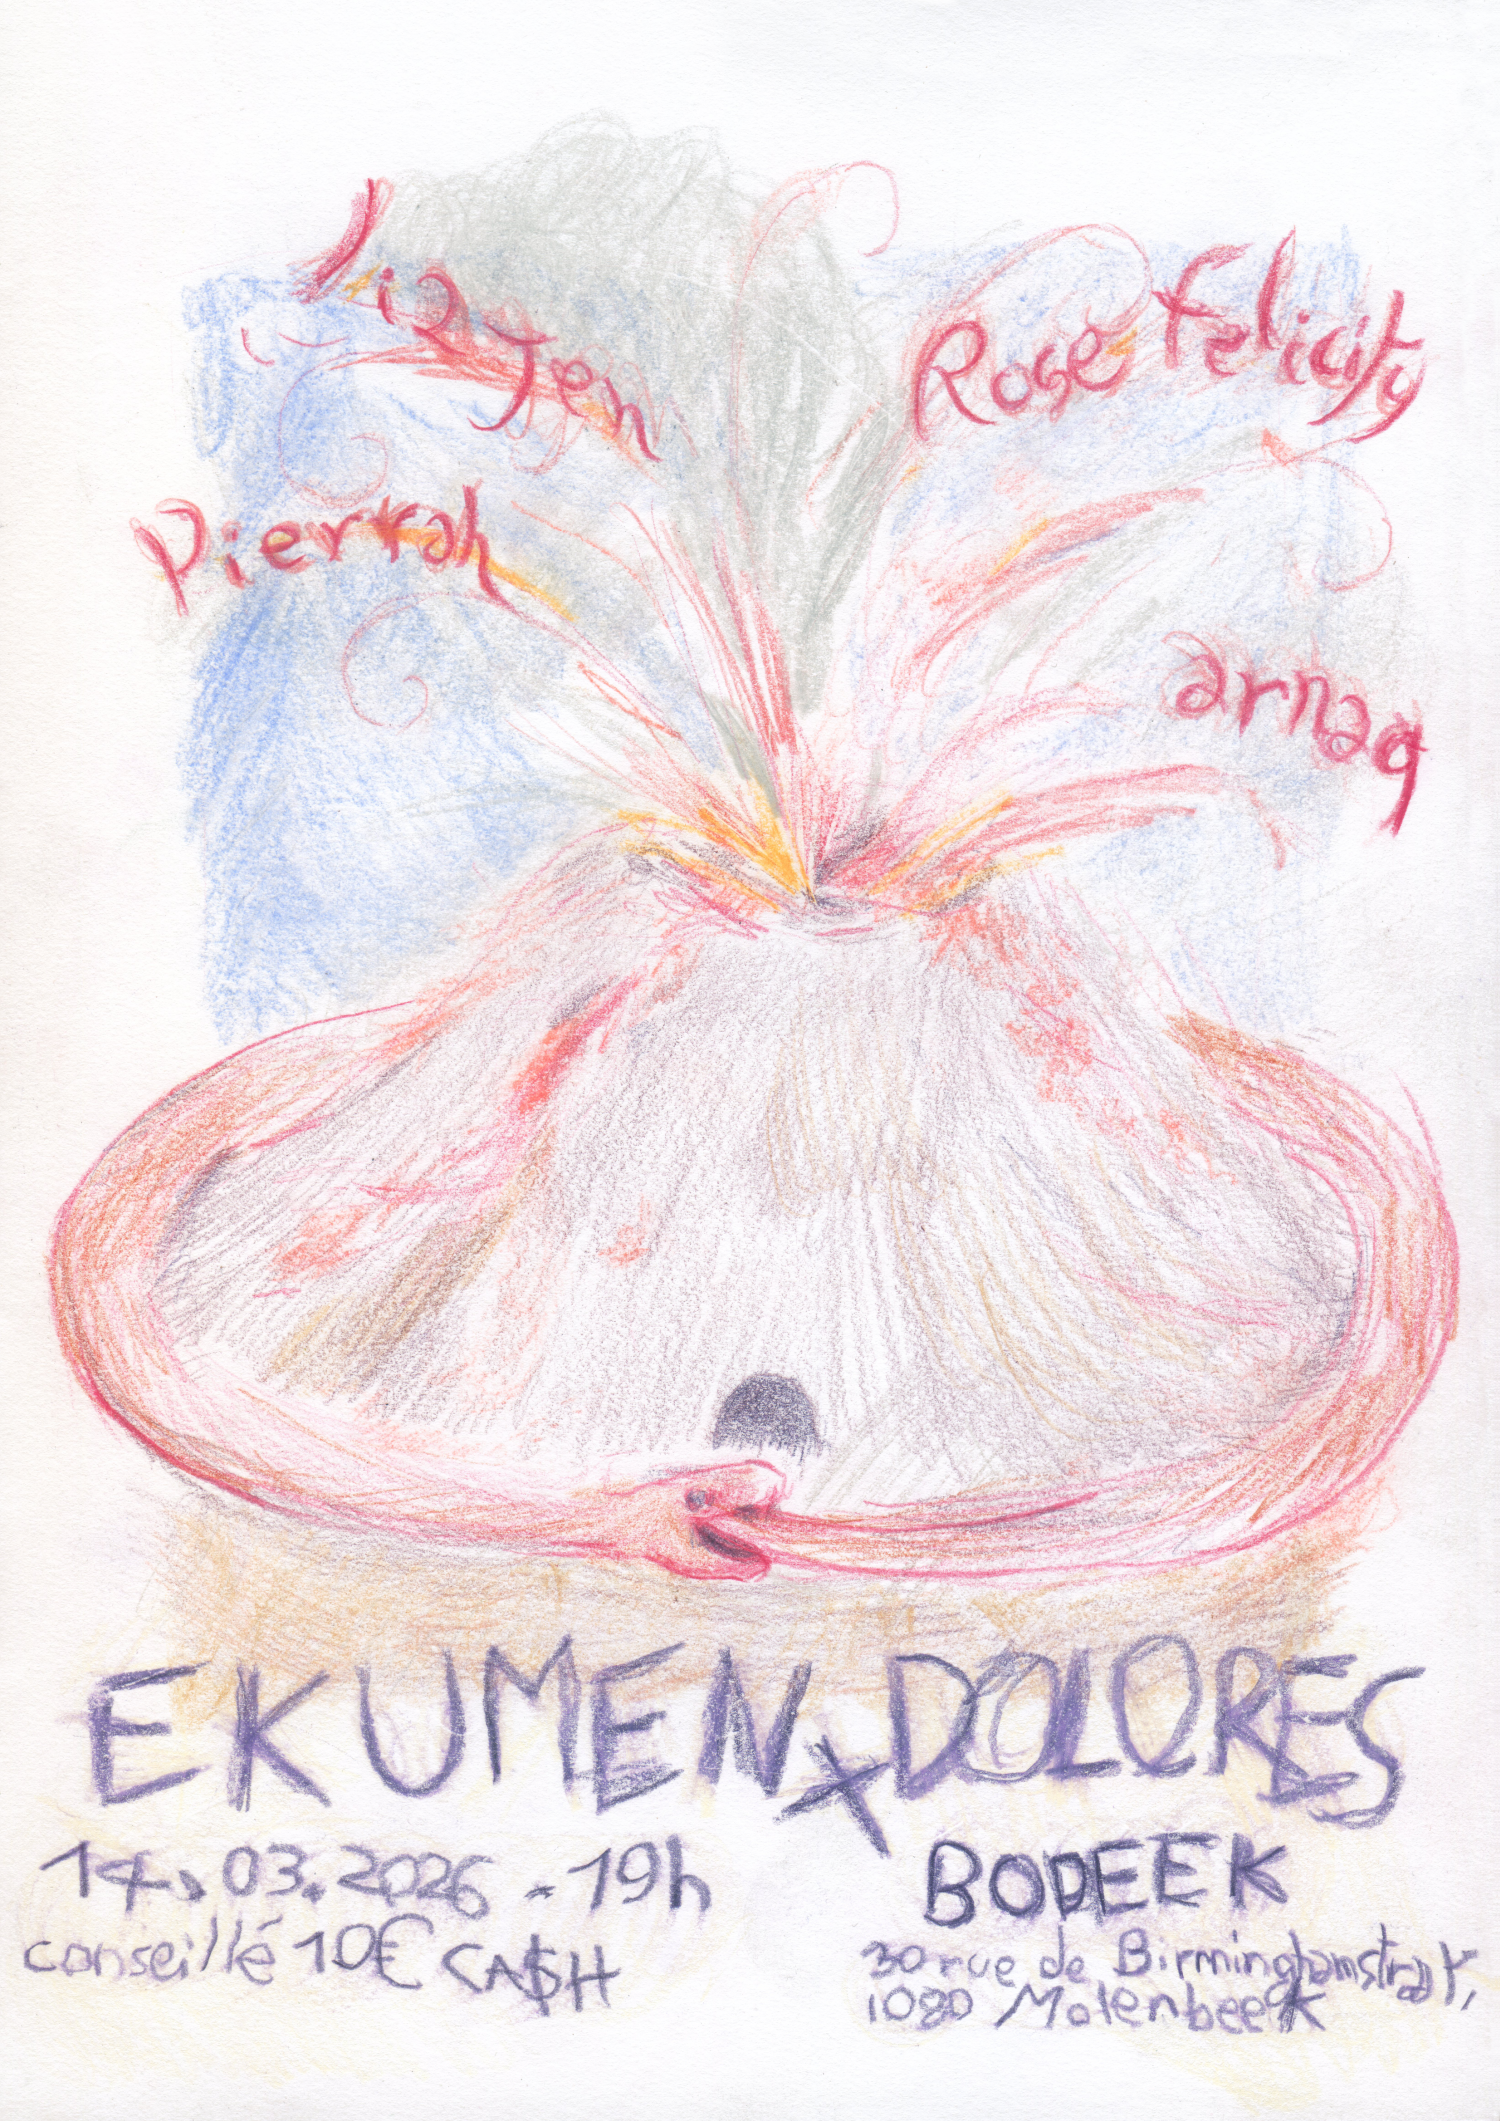 lizJen
Rose Felicity
Pierrah
arnaq
EKUMEN x DOLORES
14.03.2026 - 19h
conseillé 10€ CA$H
BODEEK
30 rue de Birminghamstraat,
1080 Molenbeek